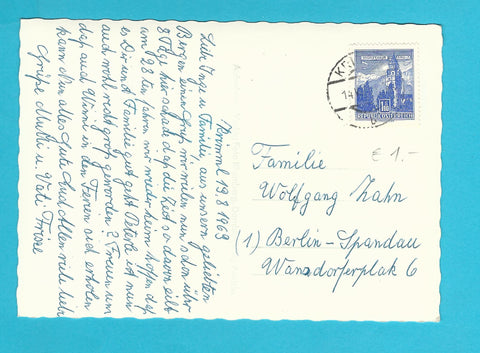 Krimml 19.8.1963
Liebe Inge u. Familie, aus unsern geliebten
Bergen einen Gruß wir weilen nun schon über
8 Tage hier schade daß die Zeit so davon eilt
am 28ten fahren wir wieder heim hoffen daß
es Dir und Familie gut geht Peterle ist nun
auch wohl recht groß geworden? Freuen uns
daß auch in den Ferien sich erholen
kann Nun alles Gute und Allen viele liebe
Grüße Mutti u. Vati
Familie
Wolfgang Zahn
(1) Berlin-Spandau
Wansdorferplatz 6
€ 1.-
REPUBLIK ÖSTERREICH